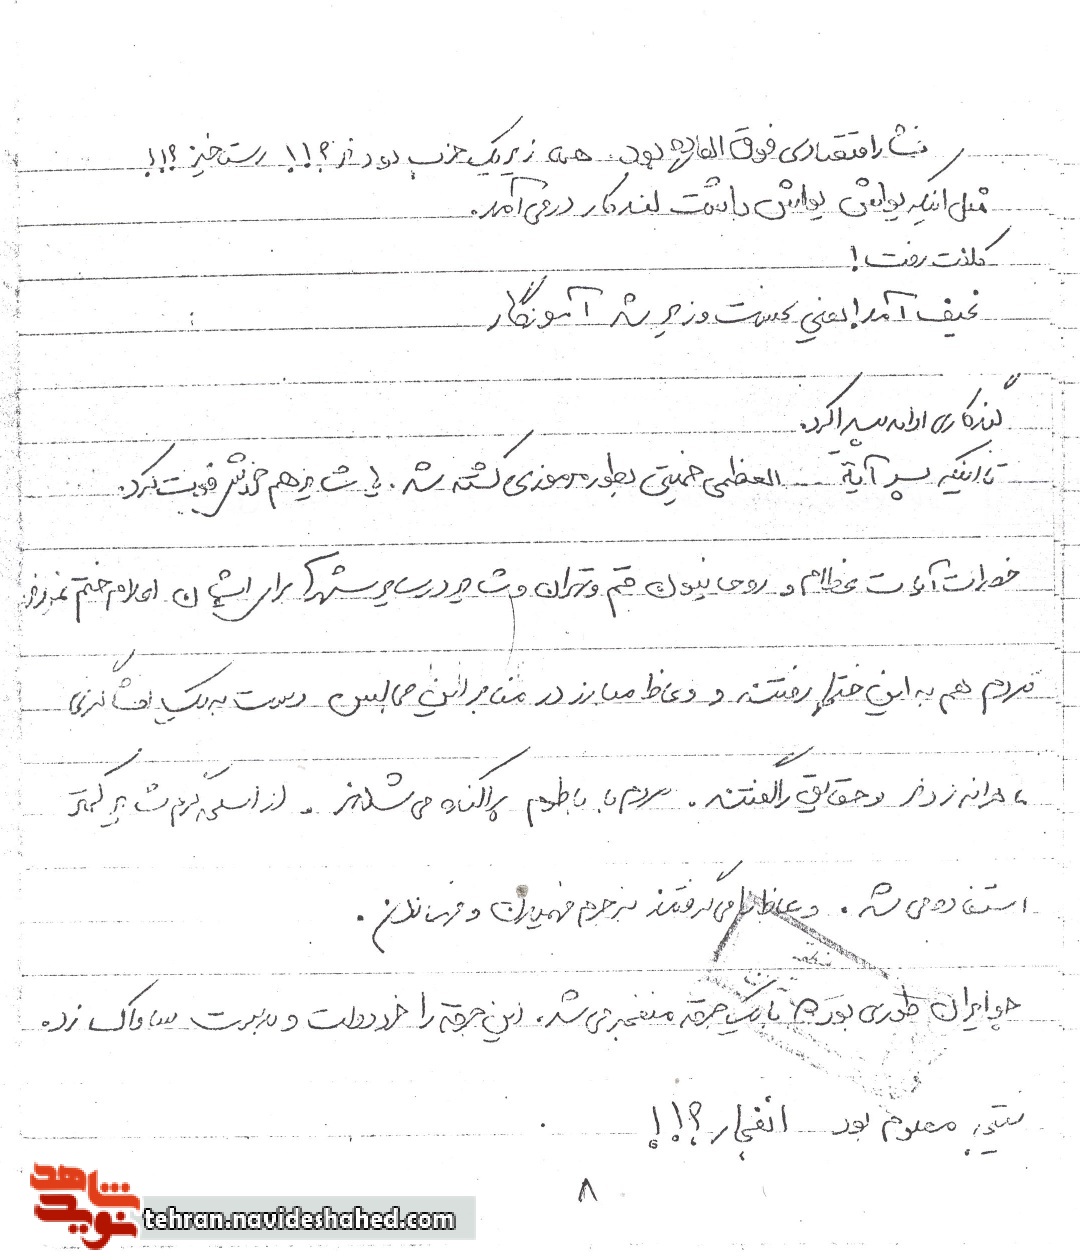 فشار اقتصادی فوق العاده بود. همه زیر یک حزب بودند؟!! رستاخیز؟!!
مثل اینکه یواش یواش داشت گندکار درمی آمد.
کلفت رفت!
نحیف آمد! یعنی نخست وزیر شد آموزگار
گندکاری ادامه پیدا کرد.
تا اینکه پسر آیة العظمی خمینی بطور مرموزی کشته شد.
حضرات آیات عظام و روحانیون قم و تهران و سایر شهرها برای ایشان اعلام ختم نمودند
مردم هم به این ختمها رفتند و وعاظ مبارز در منابر این مجالس دست به یک افشاگری
ماهرانه زدند و حقایق را گفتند. مردم با باطوم پراکنده می شدند. از اسلحه گرم کمتر
استفاده می شد. وعاظ را می گرفتند بجرم فهمیدن و فهماندن.
جو ایران طوری بود که با یک جرقه منفجر می شد. این جرقه را خود دولت و بدست ساواک زد.
نتیجه معلوم بود انفجار؟!!
۸
نوید شاهد
tehran.navideshahed.com